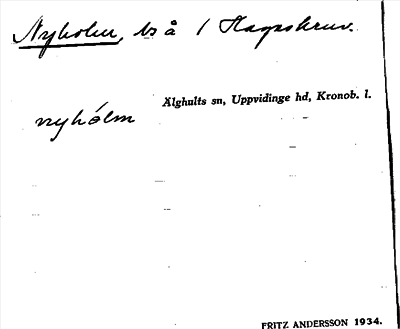 Nyholm, ts å / Hagaskruv.
Älghults sn, Uppvidinge hd, Kronob. l.
nyhólm
FRITZ ANDERSSON 1934.